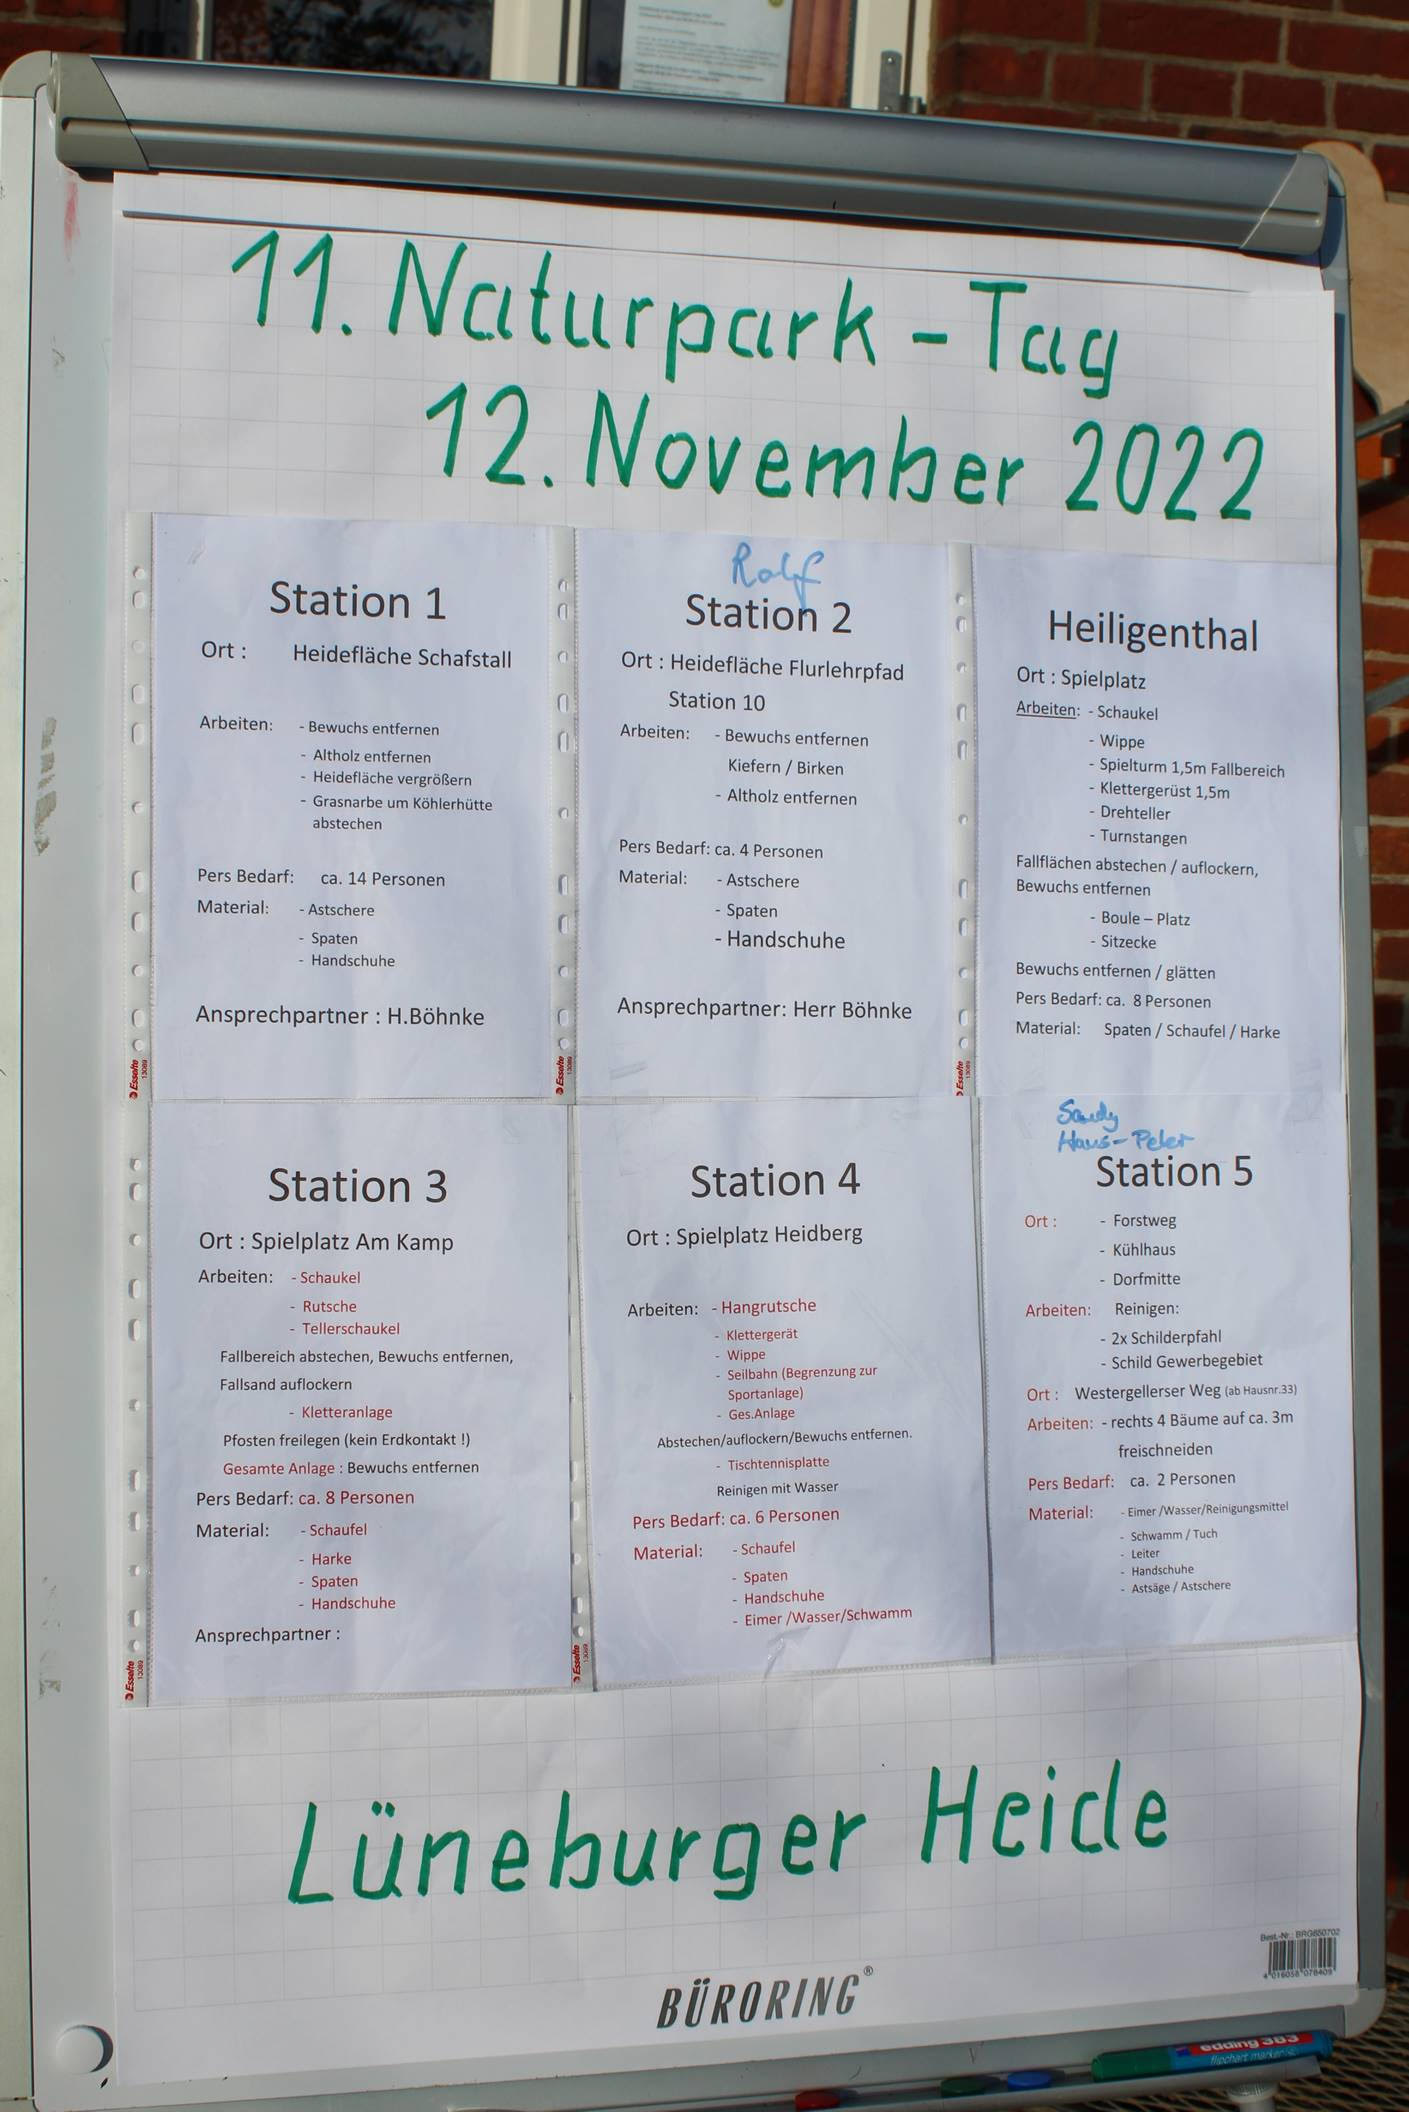 11. Naturpark - Tag
12. November 2022
Station 1
Ort : Heidefläche Schafstall
Arbeiten: - Bewuchs entfernen
- Altholz entfernen
- Heidefläche vergrößern
- Grasnarbe um Köhlerhütte
abstechen
Pers Bedarf: ca. 14 Personen
Material: - Astschere
- Spaten
- Handschuhe
Ansprechpartner : H.Böhnke
Rolf
Station 2
Ort : Heidefläche Flurlehrpfad
Station 10
Arbeiten: - Bewuchs entfernen
Kiefern / Birken
- Altholz entfernen
Pers Bedarf: ca. 4 Personen
Material: - Astschere
- Spaten
- Handschuhe
Ansprechpartner: Herr Böhnke
Heiligenthal
Ort : Spielplatz
Arbeiten: - Schaukel
- Wippe
- Spielturm 1,5m Fallbereich
- Klettergerüst 1,5m
- Drehteller
- Turnstangen
Fallflächen abstechen / auflockern,
Bewuchs entfernen
- Boule – Platz
- Sitzecke
Bewuchs entfernen / glätten
Pers Bedarf: ca. 8 Personen
Material: Spaten / Schaufel / Harke
Esselte 13089
Esselte 13089
Esselte 13089
Station 3
Ort : Spielplatz Am Kamp
Arbeiten: - Schaukel
- Rutsche
- Tellerschaukel
Fallbereich abstechen, Bewuchs entfernen,
Fallsand auflockern
- Kletteranlage
Pfosten freilegen (kein Erdkontakt !)
Gesamte Anlage : Bewuchs entfernen
Pers Bedarf: ca. 8 Personen
Material: - Schaufel
- Harke
- Spaten
- Handschuhe
Ansprechpartner :
Station 4
Ort : Spielplatz Heidberg
Arbeiten: - Hangrutsche
- Klettergerät
- Wippe
- Seilbahn (Begrenzung zur
Sportanlage)
- Ges.Anlage
Abstechen/auflockern/Bewuchs entfernen.
- Tischtennisplatte
Reinigen mit Wasser
Pers Bedarf: ca. 6 Personen
Material: - Schaufel
- Spaten
- Handschuhe
- Eimer /Wasser/Schwamm
Sandy
Hans-Peter
Station 5
Ort : - Forstweg
- Kühlhaus
- Dorfmitte
Arbeiten: Reinigen:
- 2x Schilderpfahl
- Schild Gewerbegebiet
Ort : Westergellerser Weg (ab Hausnr.33)
Arbeiten: - rechts 4 Bäume auf ca. 3m
freischneiden
Pers Bedarf: ca. 2 Personen
Material: - Eimer /Wasser/Reinigungsmittel
- Schwamm / Tuch
- Leiter
- Handschuhe
- Astsäge / Astschere
Esselte 13089
Esselte 13089
Lüneburger Heide
Best.-Nr.: BRG850702
4 016058 078409
BÜRORING®
edding 383
flipchart marker